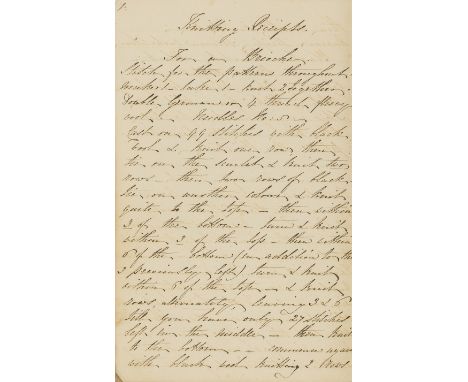 1.
Knitting Receipts.
For a Brioche
Stitch for the pattern throughout
2 together
Double German or 4 thread fleecy
wool Needles No
Cast on 99 stitches with black
wool & knit one row then
tie on the scarlet & knit two
rows - then two rows of black
tie on another colour & knit
quite to the top - then within
3 of the bottom - turn & knit
within 3 of the top - then within
6 of the bottom (in addition to the
3 previously left) turn & knit
within 6 of the top - & knit
rows alternately, leaving 3 & 6
till you have only 27 stitches
left in the middle - then knit
to the bottom - commence again
with black wool knitting 2 rows